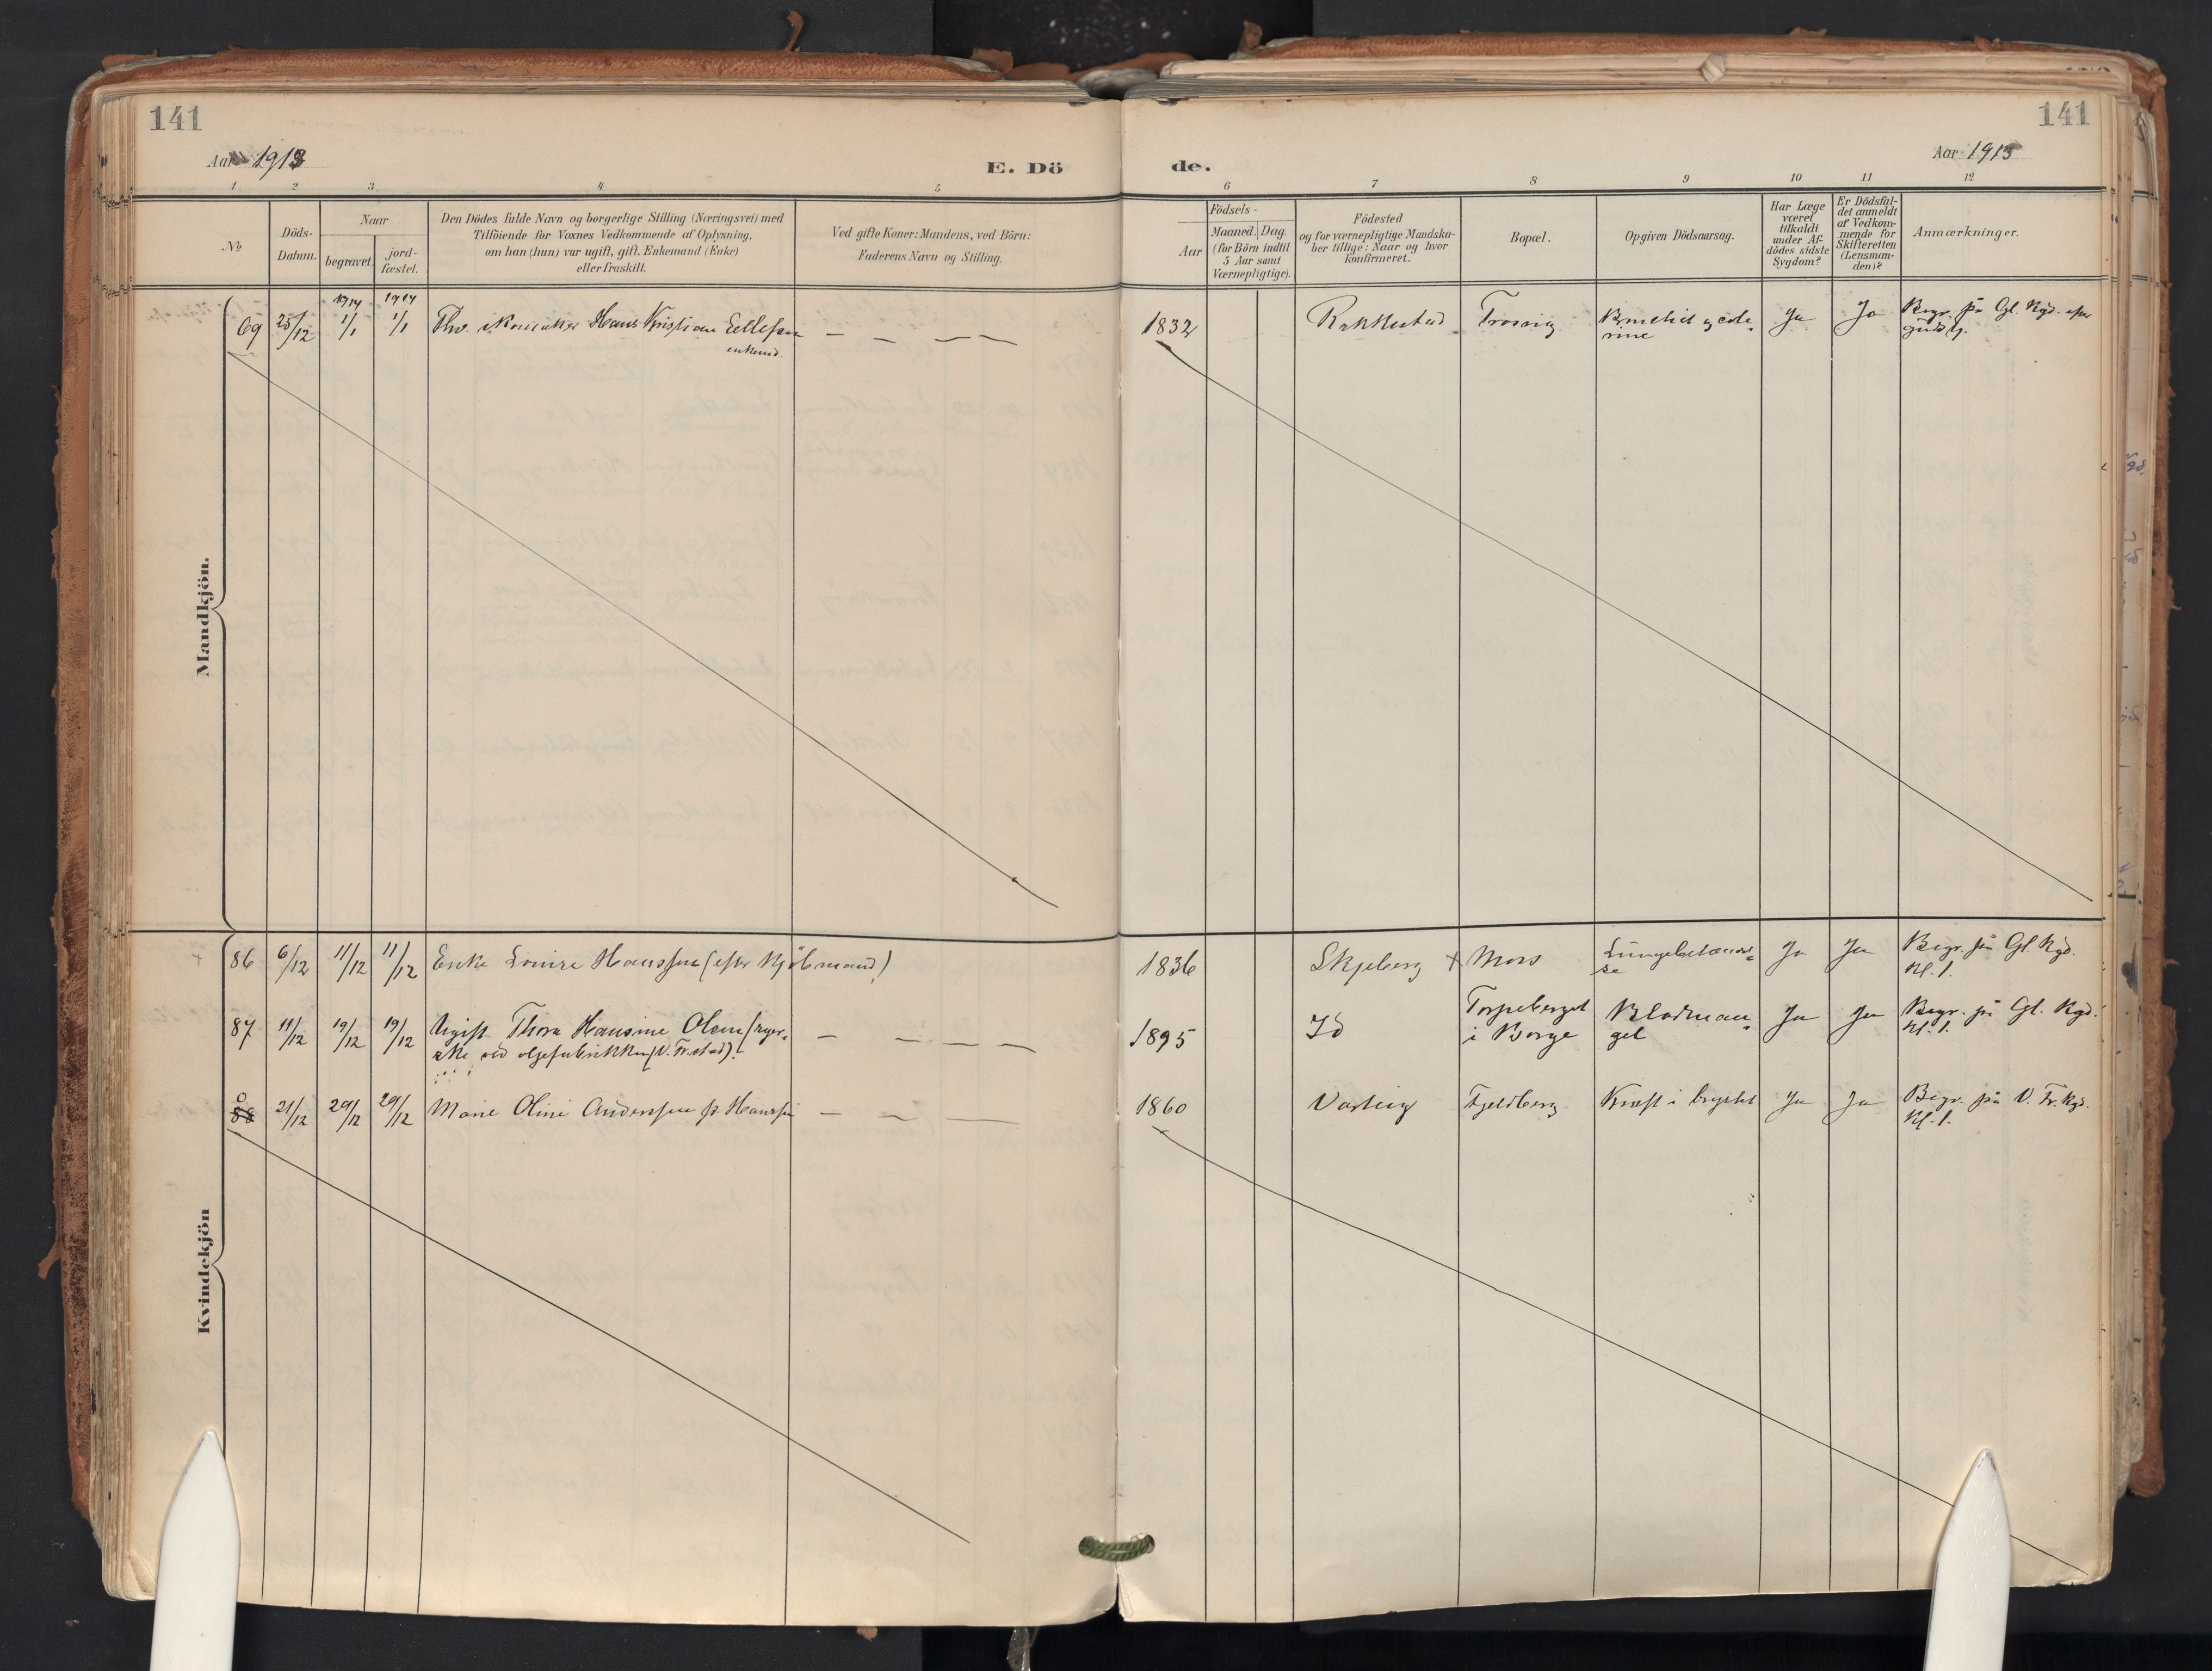 141
Aar 1913
E. Dö
1 2 3 4 5
№
Döds-
Datum.
Naar
begravet.
jord-
fæstet.
Den Dödes fulde Navn og borgerlige Stilling (Næringsvei) med
Tilföiende for Voxnes Vedkommende af Oplysning,
om han (hun) var ugift, gift, Enkemand (Enke)
eller fraskilt.
Ved gifte Koner: Mandens, ved Börn:
Faderens Navn og Stilling.
Mandkjön.
69 25/12 1914 1/1 1914 1/1 Fhv. skomaker Hans Kristian Ellefsen — — — —
enkemd.
Kvindekjön
86 6/12 11/12 11/12 Enke Louise Hanssen (efter Kjöbmand)
87 11/12 19/12 19/12 Ugift Thora Hansine Olsen
ske ved oljefabrikken (V. Fr.stad). — — — —
88 21/12 29/12 29/12 Marie Oline Anderssen f. Hanssen — — —
141
Aar 1913
de.
6 7 8 9 10 11 12
Aar
Födsels-
Maaned. Dag.
(for Börn indtil
5 Aar samt
Værnepligtige).
Födested
og for værnepligtige Mandska-
ber tillige: Naar og hvor
konfirmeret.
Bopæl.
Opgiven Dödsaarsag.
Har Læge
været
tilkaldt
under Af-
dödes sidste
Sygdom?
Er Dödsfal-
det anmeldt
af Vedkom-
mende for
Skifteretten
(Lensman-
den)?
Anmærkninger.
1832 Rakkestad Trosvig Bronchit og ede- Ja Ja Begr. på Gl. Kgd. efter
1836 Skjeberg + Moss Lungebetændel- Ja Ja Begr. på Gl. Kgd.
se Kl. 1.
1895 Id Torpeberget Blodman- Ja Ja Begr. på Gl. Kgd.
i Borge gel Kl. 1.
1860 Varteig Fjeldberg Kræft i brystet Ja Ja Begr. på V. Fr. Kgd.
Kl. 1.